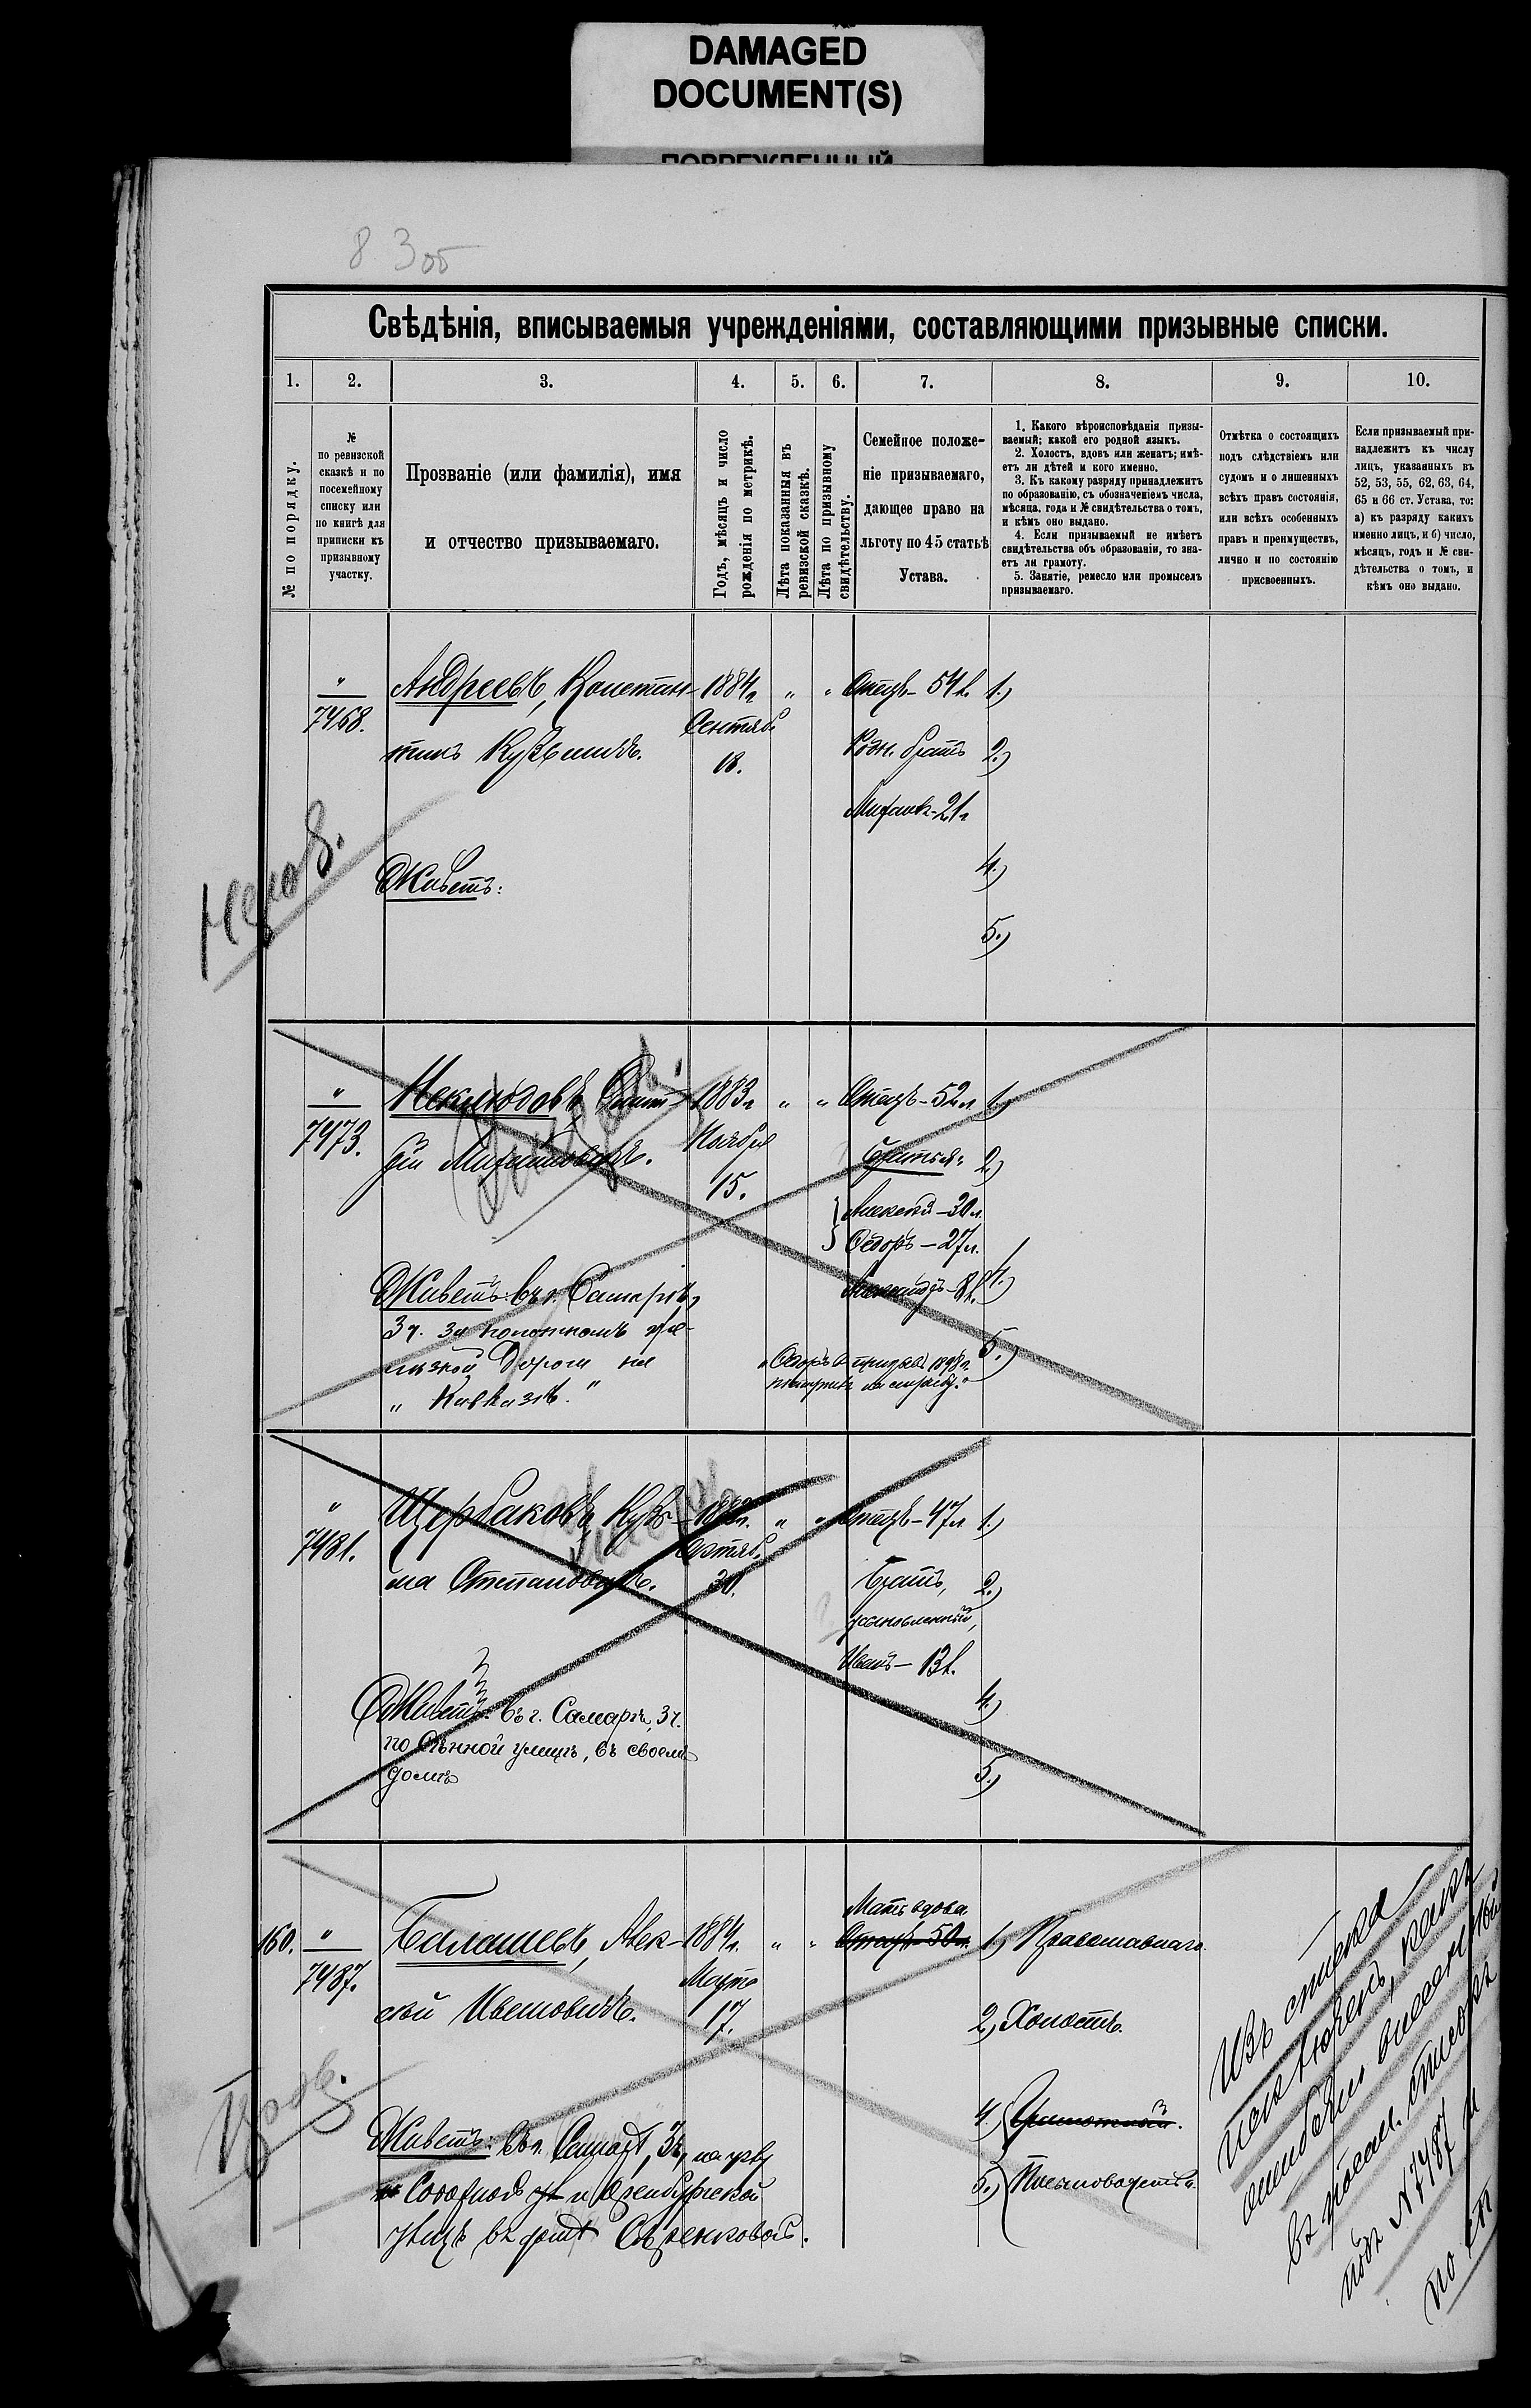 DAMAGED
DOCUMENT(S)
ПОВРЕЖДЕННЫЙ
8 3об
Свѣдѣнія, вписываемыя учрежденіями, составляющими призывные списки.
1. 2. 3. 4. 5. 6. 7. 8. 9. 10.
№ по порядку.
№
по ревизской
сказкѣ и по
посемейному
списку или
по книгѣ для
приписки къ
призывному
участку.
Прозваніе (или фамилія), имя
и отчество призываемаго.
Годъ, мѣсяцъ и число
рожденія по метрикѣ.
Лѣта показанныя въ
ревизской сказкѣ.
Лѣта по призывному
свидѣтельству.
Семейное положе-
ніе призываемаго,
дающее право на
льготу по 45 статьѣ
Устава.
1. Какого вѣроисповѣданія призы-
ваемый; какой его родной языкъ.
2. Холостъ, вдовъ или женатъ; имѣ-
етъ ли дѣтей и кого именно.
3. Къ какому разряду принадлежитъ
по образованію, съ обозначеніемъ числа,
мѣсяца, года и № свидѣтельства о томъ,
и кѣмъ оно выдано.
4. Если призываемый не имѣетъ
свидѣтельства объ образованіи, то зна-
етъ ли грамоту.
5. Занятіе, ремесло или промыселъ
призываемаго.
Отмѣтка о состоящихъ
подъ слѣдствіемъ или
судомъ и о лишенныхъ
всѣхъ правъ состоянія,
или всѣхъ особенныхъ
правъ и преимуществъ,
лично и по состоянію
присвоенныхъ.
Если призываемый при-
надлежитъ къ числу
лицъ, указанныхъ въ
52, 53, 55, 62, 63, 64,
65 и 66 ст. Устава, то:
а) къ разряду какихъ
именно лицъ, и б) число,
мѣсяцъ, годъ и № сви-
дѣтельства о томъ, и
кѣмъ оно выдано.
"
7468.
Андреевъ, Констан-
тинъ Кузьмичъ.
1884г.
Сентяб
18.
" "
Отецъ - 54 л.
Родн. братъ
Михаилъ - 21 г.
1.)
2.)
4.)
5.)
Живетъ:
"
7473.
Неклюдовъ,
Михайловичъ.
1883г.
Ноября
15.
" "
Отецъ - 52 л.
Братья:
Алексѣй - 30 л.
Ѳедоръ - 27 л.
Александръ - 8 л.
1.)
2.)
4.)
5.)
Живетъ: въ г. Самарѣ,
3 ч. за полотномъ же-
лѣзной дороги на
„Кавказѣ."
„Ѳедоръ въ призывъ 1898 г.
поступилъ на службу."
"
7481.
Щербаковъ, Кузь-
ма Степановичъ.
1882г.
Октяб.
30.
" "
Отецъ - 47 л.
Братъ,
усыновленный,
Иванъ - 13 л.
1.)
2.)
4.)
5.)
Живетъ: въ г. Самарѣ, 3 ч.
по Сѣнной улицѣ, въ своемъ
домѣ
160.
"
7487.
Балашевъ, Алек-
сѣй Ивановичъ.
1884г.
Марта
17.
" "
Мать вдова.
Отецъ - 50 л.
1.) Православнаго.
2.) Холостъ.
4.) Грамотный.
5.) Письмоводитель.
Живетъ: въ г. Самарѣ, 3 ч., на углу
и Оренбургской
улицъ въ домѣ
Изъ списка
исключенъ, какъ
ошибочно внесенный
въ посем. списокъ
подъ N 7487 и
по